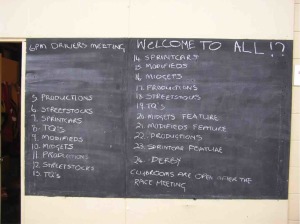 6PM DRIVERS MEETING
5. PRODUCTIONS
6. STREETSTOCKS
7. SPRINTCARS
8. TQ'S
9. MODIFIEDS
10. MIDGETS
11. PRODUCTIONS
12. STREETSTOCKS
13. TQ'S
WELCOME TO ALL!?
14. SPRINTCARS
15. MODIFIEDS
16. MIDGETS
17. PRODUCTIONS
18. STREETSTOCKS
19. TQ'S
20. MIDGETS FEATURE
21. MODIFIEDS FEATURE
22. PRODUCTIONS
23. SPRINTCAR FEATURE
24. DERBY
CLUBROOMS ARE OPEN AFTER THE
RACE MEETING